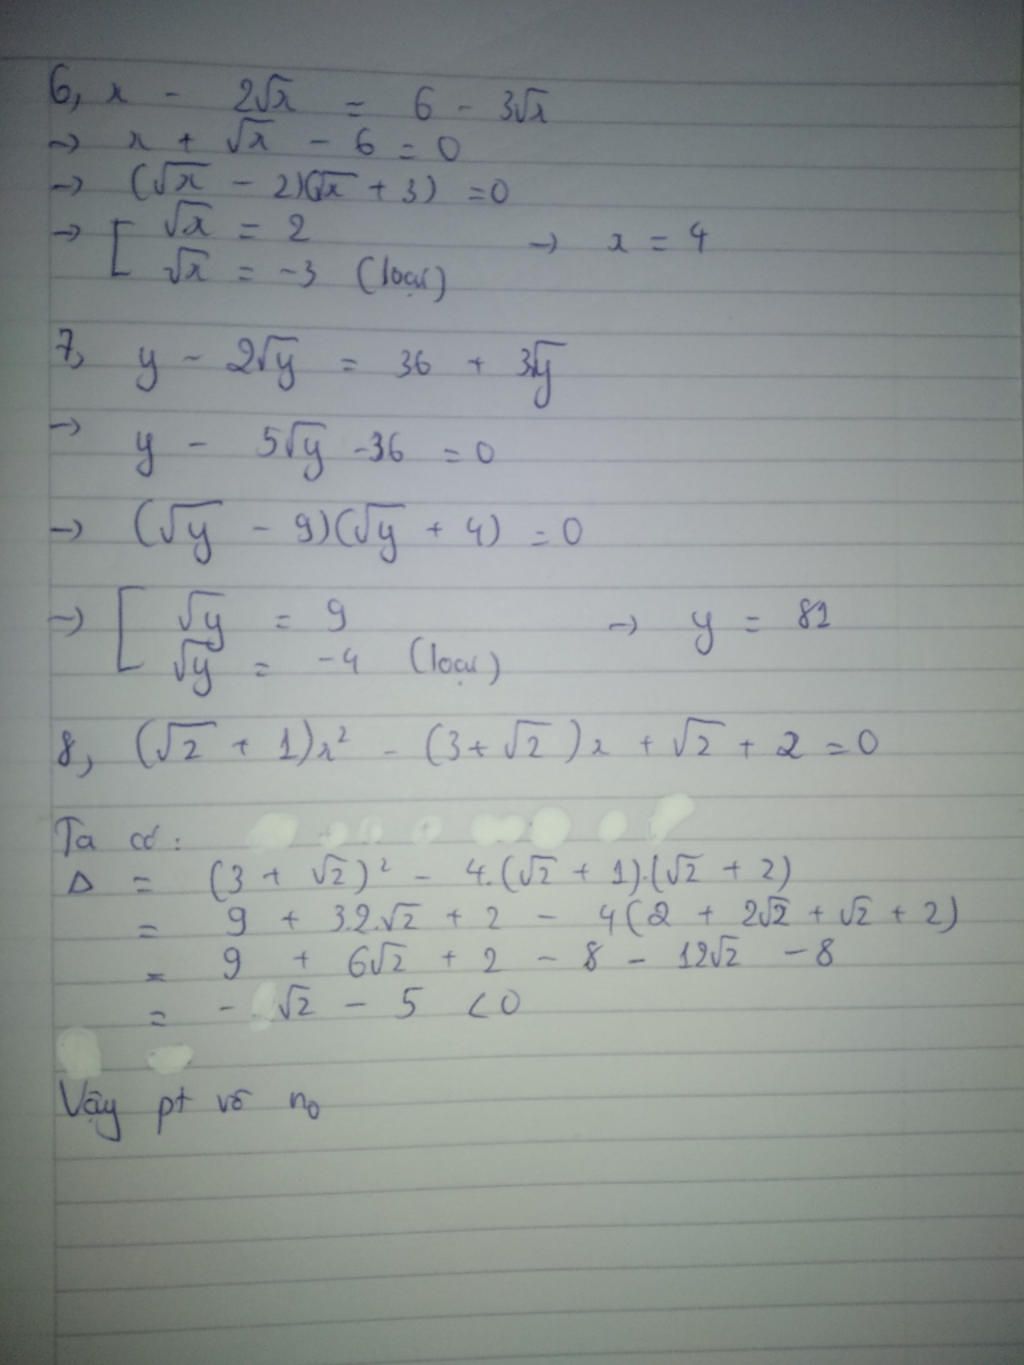 6, x - 2√x = 6 - 3√x
→ x + √x - 6 = 0
→ (√x - 2)(√x + 3) = 0
→ [ √x = 2 → x = 4
√x = -3 (loại)
7, y - 2√y = 36 + 3√y
→ y - 5√y - 36 = 0
→ (√y - 9)(√y + 4) = 0
→ [ √y = 9 → y = 81
√y = -4 (loại)
8, (√2 + 1)x² - (3+√2)x + √2 + 2 = 0
Ta có:
Δ = (3 + √2)² - 4.(√2 + 1).(√2 + 2)
= 9 + 3.2.√2 + 2 - 4(2 + 2√2 + √2 + 2)
= 9 + 6√2 + 2 - 8 - 12√2 - 8
= - √2 - 5 < 0
Vậy pt vô n₀